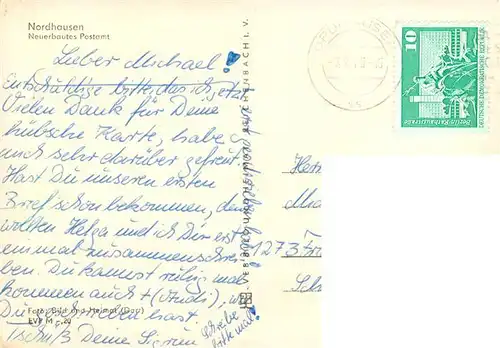 Nordhausen
Neuerbautes Postamt
Lieber Michael!
Entschuldige bitte, das ich jetzt
Vielen Dank für Deine
hübsche Karte, habe
mich sehr darüber gefreut.
Hast Du unseren ersten
Brief schon bekommen, den
wollten Helga und ich Dir erst
einmal zusammenschrei-
ben. Du kannst ruhig mal
kommen auch + (Andi),
Du geschrieben hast
Tschüß Deine Sigrun
schreibe
bitte mal!
Foto: Bild und Heimat (Darr)
VEB BILD UND HEIMAT REICHENBACH I. V.
10
DEUTSCHE DEMOKRATISCHE REPUBLIK
Berlin · Rathausstraße
Herr
1273